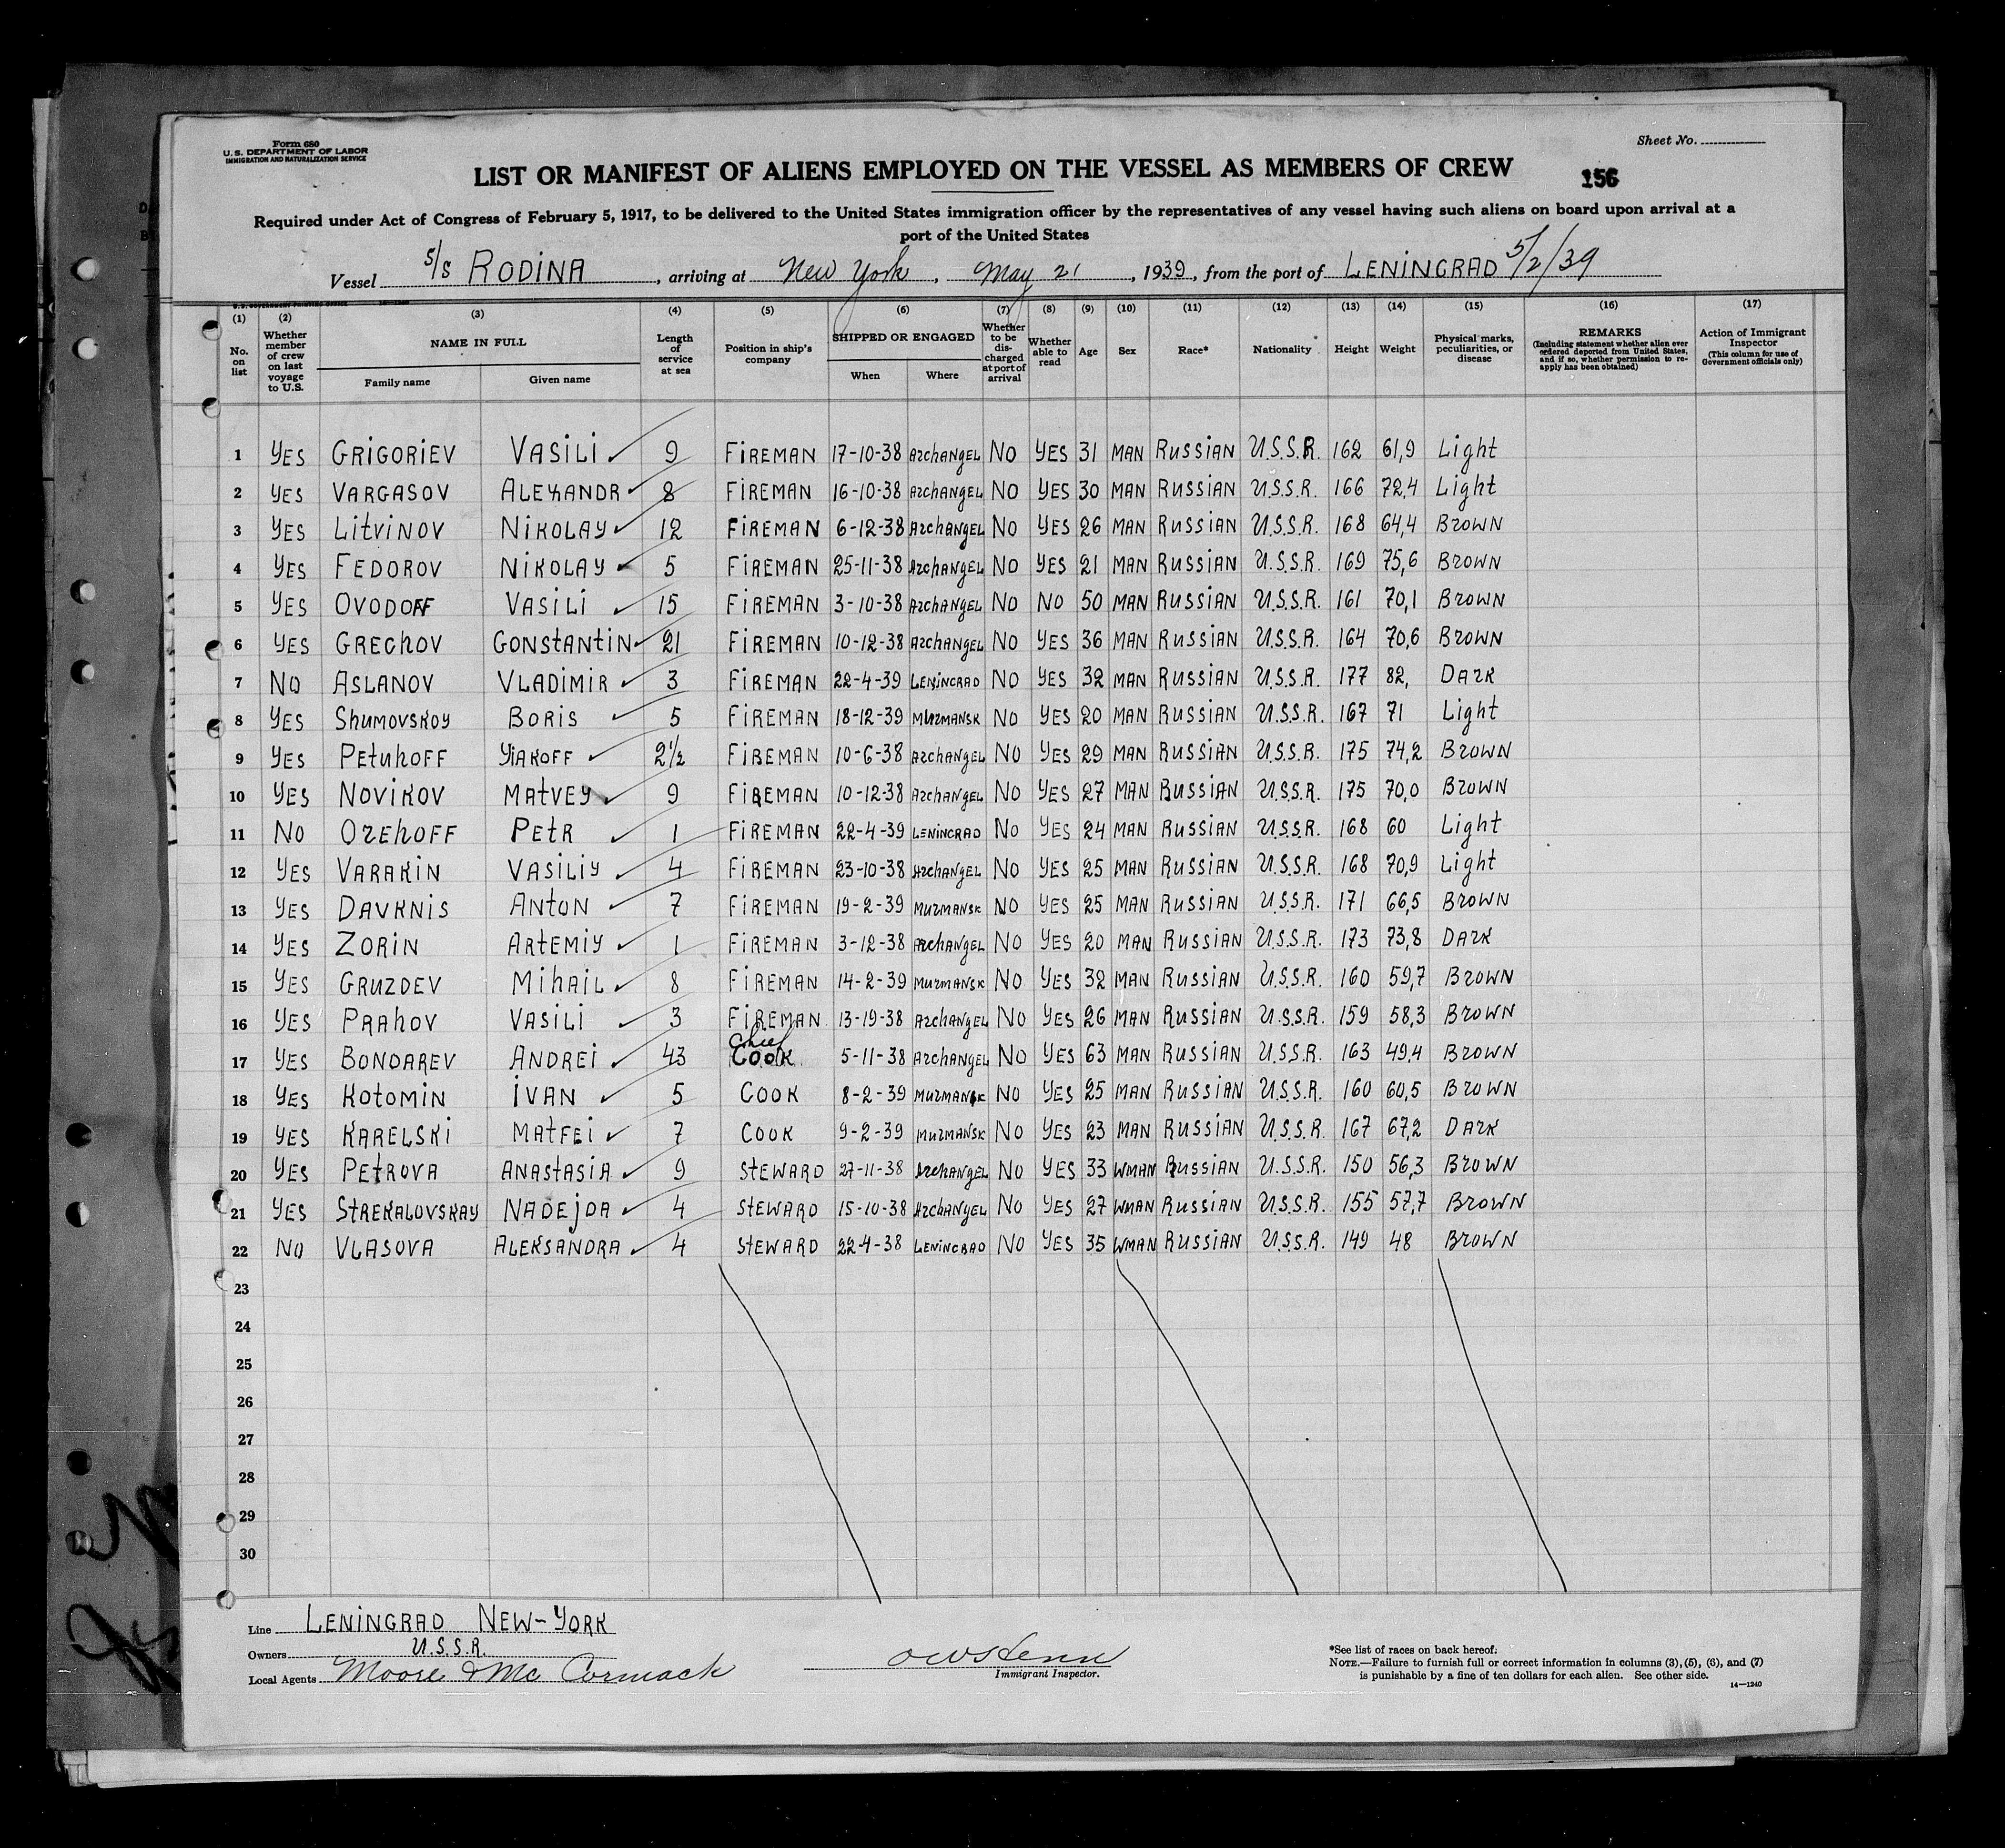 Form 680
U. S. DEPARTMENT OF LABOR
IMMIGRATION AND NATURALIZATION SERVICE
Sheet No.
LIST OR MANIFEST OF ALIENS EMPLOYED ON THE VESSEL AS MEMBERS OF CREW
156
Required under Act of Congress of February 5, 1917, to be delivered to the United States immigration officer by the representatives of any vessel having such aliens on board upon arrival at a
port of the United States
Vessel S/S RODINA, arriving at New York, May 21, 1939, from the port of LENINGRAD 5/2/39
(1) (2) (3) (4) (5) (6) (7) (8) (9) (10) (11) (12) (13) (14) (15) (16) (17)
No. on list
Whether member of crew on last voyage to U.S.
NAME IN FULL
Family name
Given name
Length of service at sea
Position in ship's company
SHIPPED OR ENGAGED
When
Where
Whether to be discharged at port of arrival
Whether able to read
Age
Sex
Race*
Nationality
Height
Weight
Physical marks, peculiarities, or disease
REMARKS
(Including statement whether alien ever ordered deported from United States, and if so, whether permission to reapply has been obtained)
Action of Immigrant Inspector
(This column for use of Government officials only)
1 YES GRIGORIEV VASILI 9 FIREMAN 17-10-38 ARCHANGEL NO YES 31 MAN RUSSIAN U.S.S.R. 162 61,9 Light
2 YES VARGASOV ALEXANDR 8 FIREMAN 16-10-38 ARCHANGEL NO YES 30 MAN RUSSIAN U.S.S.R. 166 72,4 Light
3 YES LITVINOV NIKOLAY 12 FIREMAN 6-12-38 ARCHANGEL NO YES 26 MAN RUSSIAN U.S.S.R. 168 64,4 BROWN
4 YES FEDOROV NIKOLAY 5 FIREMAN 25-11-38 ARCHANGEL NO YES 21 MAN RUSSIAN U.S.S.R. 169 75,6 BROWN
5 YES OVODOFF VASILI 15 FIREMAN 3-10-38 ARCHANGEL NO NO 50 MAN RUSSIAN U.S.S.R. 161 70,1 BROWN
6 YES GRECHOV GONSTANTIN 21 FIREMAN 10-12-38 ARCHANGEL NO YES 36 MAN RUSSIAN U.S.S.R. 164 70,6 BROWN
7 NO ASLANOV VLADIMIR 3 FIREMAN 22-4-39 LENINGRAD NO YES 32 MAN RUSSIAN U.S.S.R. 177 82, DARK
8 YES SHUMOVSKOY BORIS 5 FIREMAN 18-12-39 MURMANSK NO YES 20 MAN RUSSIAN U.S.S.R. 167 71 Light
9 YES PETUHOFF YIAKOFF 2½ FIREMAN 10-6-38 ARCHANGEL NO YES 29 MAN RUSSIAN U.S.S.R. 175 74,2 BROWN
10 YES NOVIKOV MATVEY 9 FIREMAN 10-12-38 ARCHANGEL NO YES 27 MAN RUSSIAN U.S.S.R. 175 70,0 BROWN
11 NO OREHOFF PETR 1 FIREMAN 22-4-39 LENINGRAD NO YES 24 MAN RUSSIAN U.S.S.R. 168 60 Light
12 YES VARAKIN VASILIY 4 FIREMAN 23-10-38 ARCHANGEL NO YES 25 MAN RUSSIAN U.S.S.R. 168 70,9 Light
13 YES DAVKNIS ANTON 7 FIREMAN 19-2-39 MURMANSK NO YES 25 MAN RUSSIAN U.S.S.R. 171 66,5 BROWN
14 YES ZORIN ARTEMIY 1 FIREMAN 3-12-38 ARCHANGEL NO YES 20 MAN RUSSIAN U.S.S.R. 173 73,8 DARK
15 YES GRUZDEV MIHAIL 8 FIREMAN 14-2-39 MURMANSK NO YES 32 MAN RUSSIAN U.S.S.R. 160 59,7 BROWN
16 YES PRAHOV VASILI 3 FIREMAN 13-19-38 ARCHANGEL NO YES 26 MAN RUSSIAN U.S.S.R. 159 58,3 BROWN
17 YES BONDAREV ANDREI 43 Chief COOK 5-11-38 ARCHANGEL NO YES 63 MAN RUSSIAN U.S.S.R. 163 49.4 BROWN
18 YES KOTOMIN IVAN 5 COOK 8-2-39 MURMANSK NO YES 25 MAN RUSSIAN U.S.S.R. 160 60,5 BROWN
19 YES KARELSKI MATFEI 7 COOK 9-2-39 MURMANSK NO YES 23 MAN RUSSIAN U.S.S.R. 167 67,2 DARK
20 YES PETROVA ANASTASIA 9 STEWARD 27-11-38 ARCHANGEL NO YES 33 WMAN RUSSIAN U.S.S.R. 150 56,3 BROWN
21 YES STREKALOVSKAY NADEJDA 4 STEWARD 15-10-38 ARCHANGEL NO YES 27 WMAN RUSSIAN U.S.S.R. 155 57,7 BROWN
22 NO VLASOVA ALEKSANDRA 4 STEWARD 22-4-38 LENINGRAD NO YES 35 WMAN RUSSIAN U.S.S.R. 149 48 BROWN
23
24
25
26
27
28
29
30
Line LENINGRAD NEW-YORK
Owners U.S.S.R.
Local Agents Moore & Mc Cormack
Immigrant Inspector.
*See list of races on back hereof.
NOTE.—Failure to furnish full or correct information in columns (3), (5), (6), and (7)
is punishable by a fine of ten dollars for each alien. See other side.
14—1240